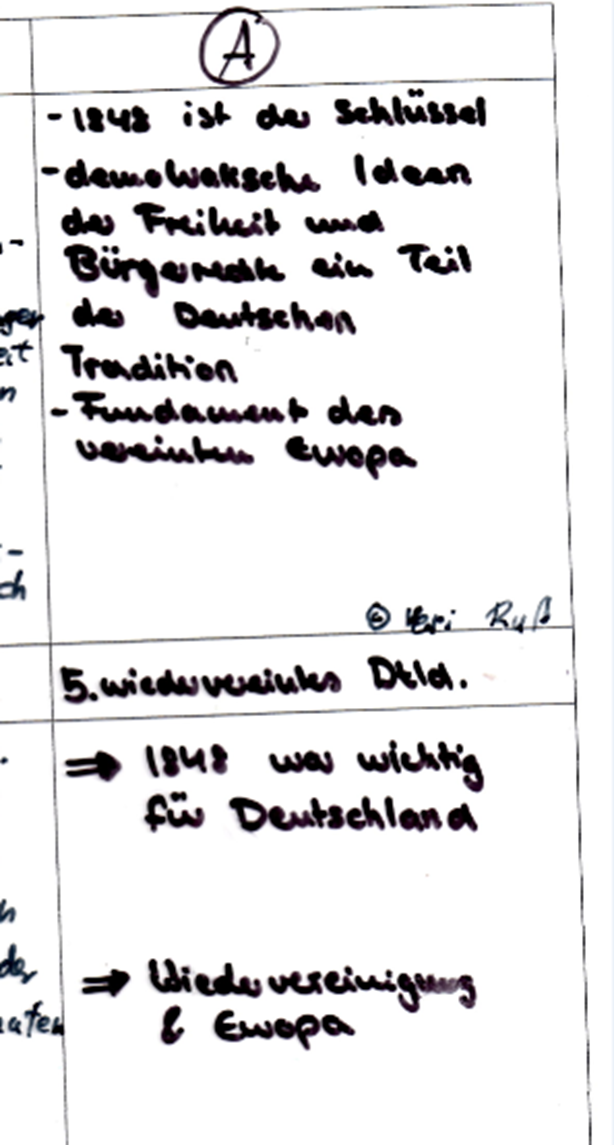 A
- 1848 ist der Schlüssel
- demokratische Ideen
der Freiheit und
Bürgerrechte ein Teil
der Deutschen
Tradition
- Fundament des
vereinten Europa
© Ruß
5. wiedervereintes Dtld.
⇒ 1848 war wichtig
für Deutschland
⇒ Wiedervereinigung
& Europa